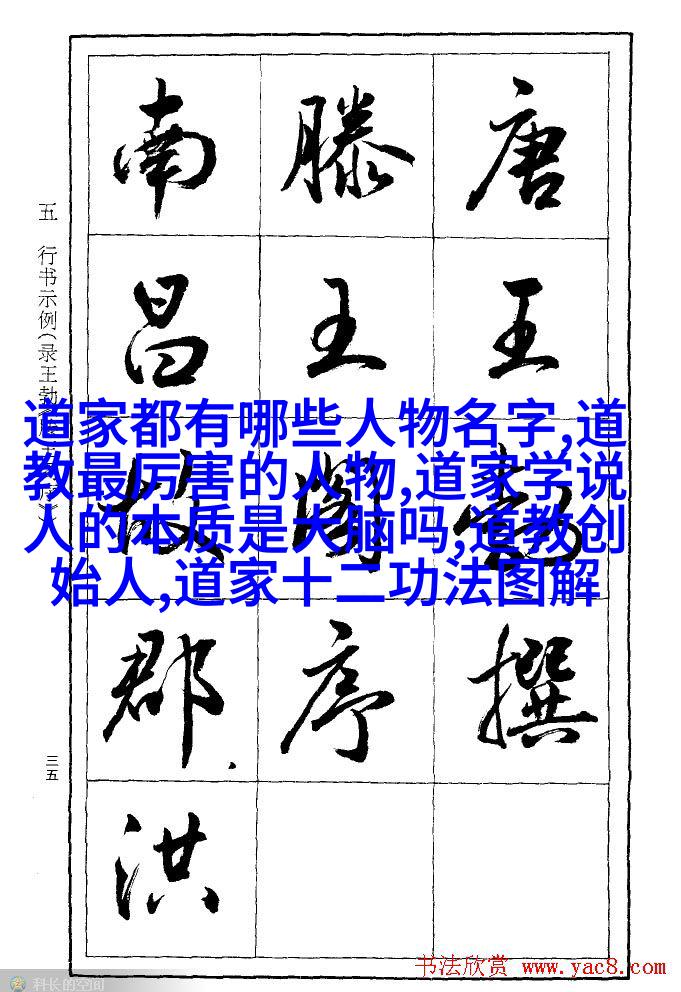 唐王勃撰
滕王阁序
南昌故郡洪
五 行书示例(录王勃
三五
道家都有哪些人物名字,道
教最厉害的人物,道家学说
人的本质是大脑吗,道教创
始人,道家十二功法图解
书法欣赏 www.yac8.com
科长的空间